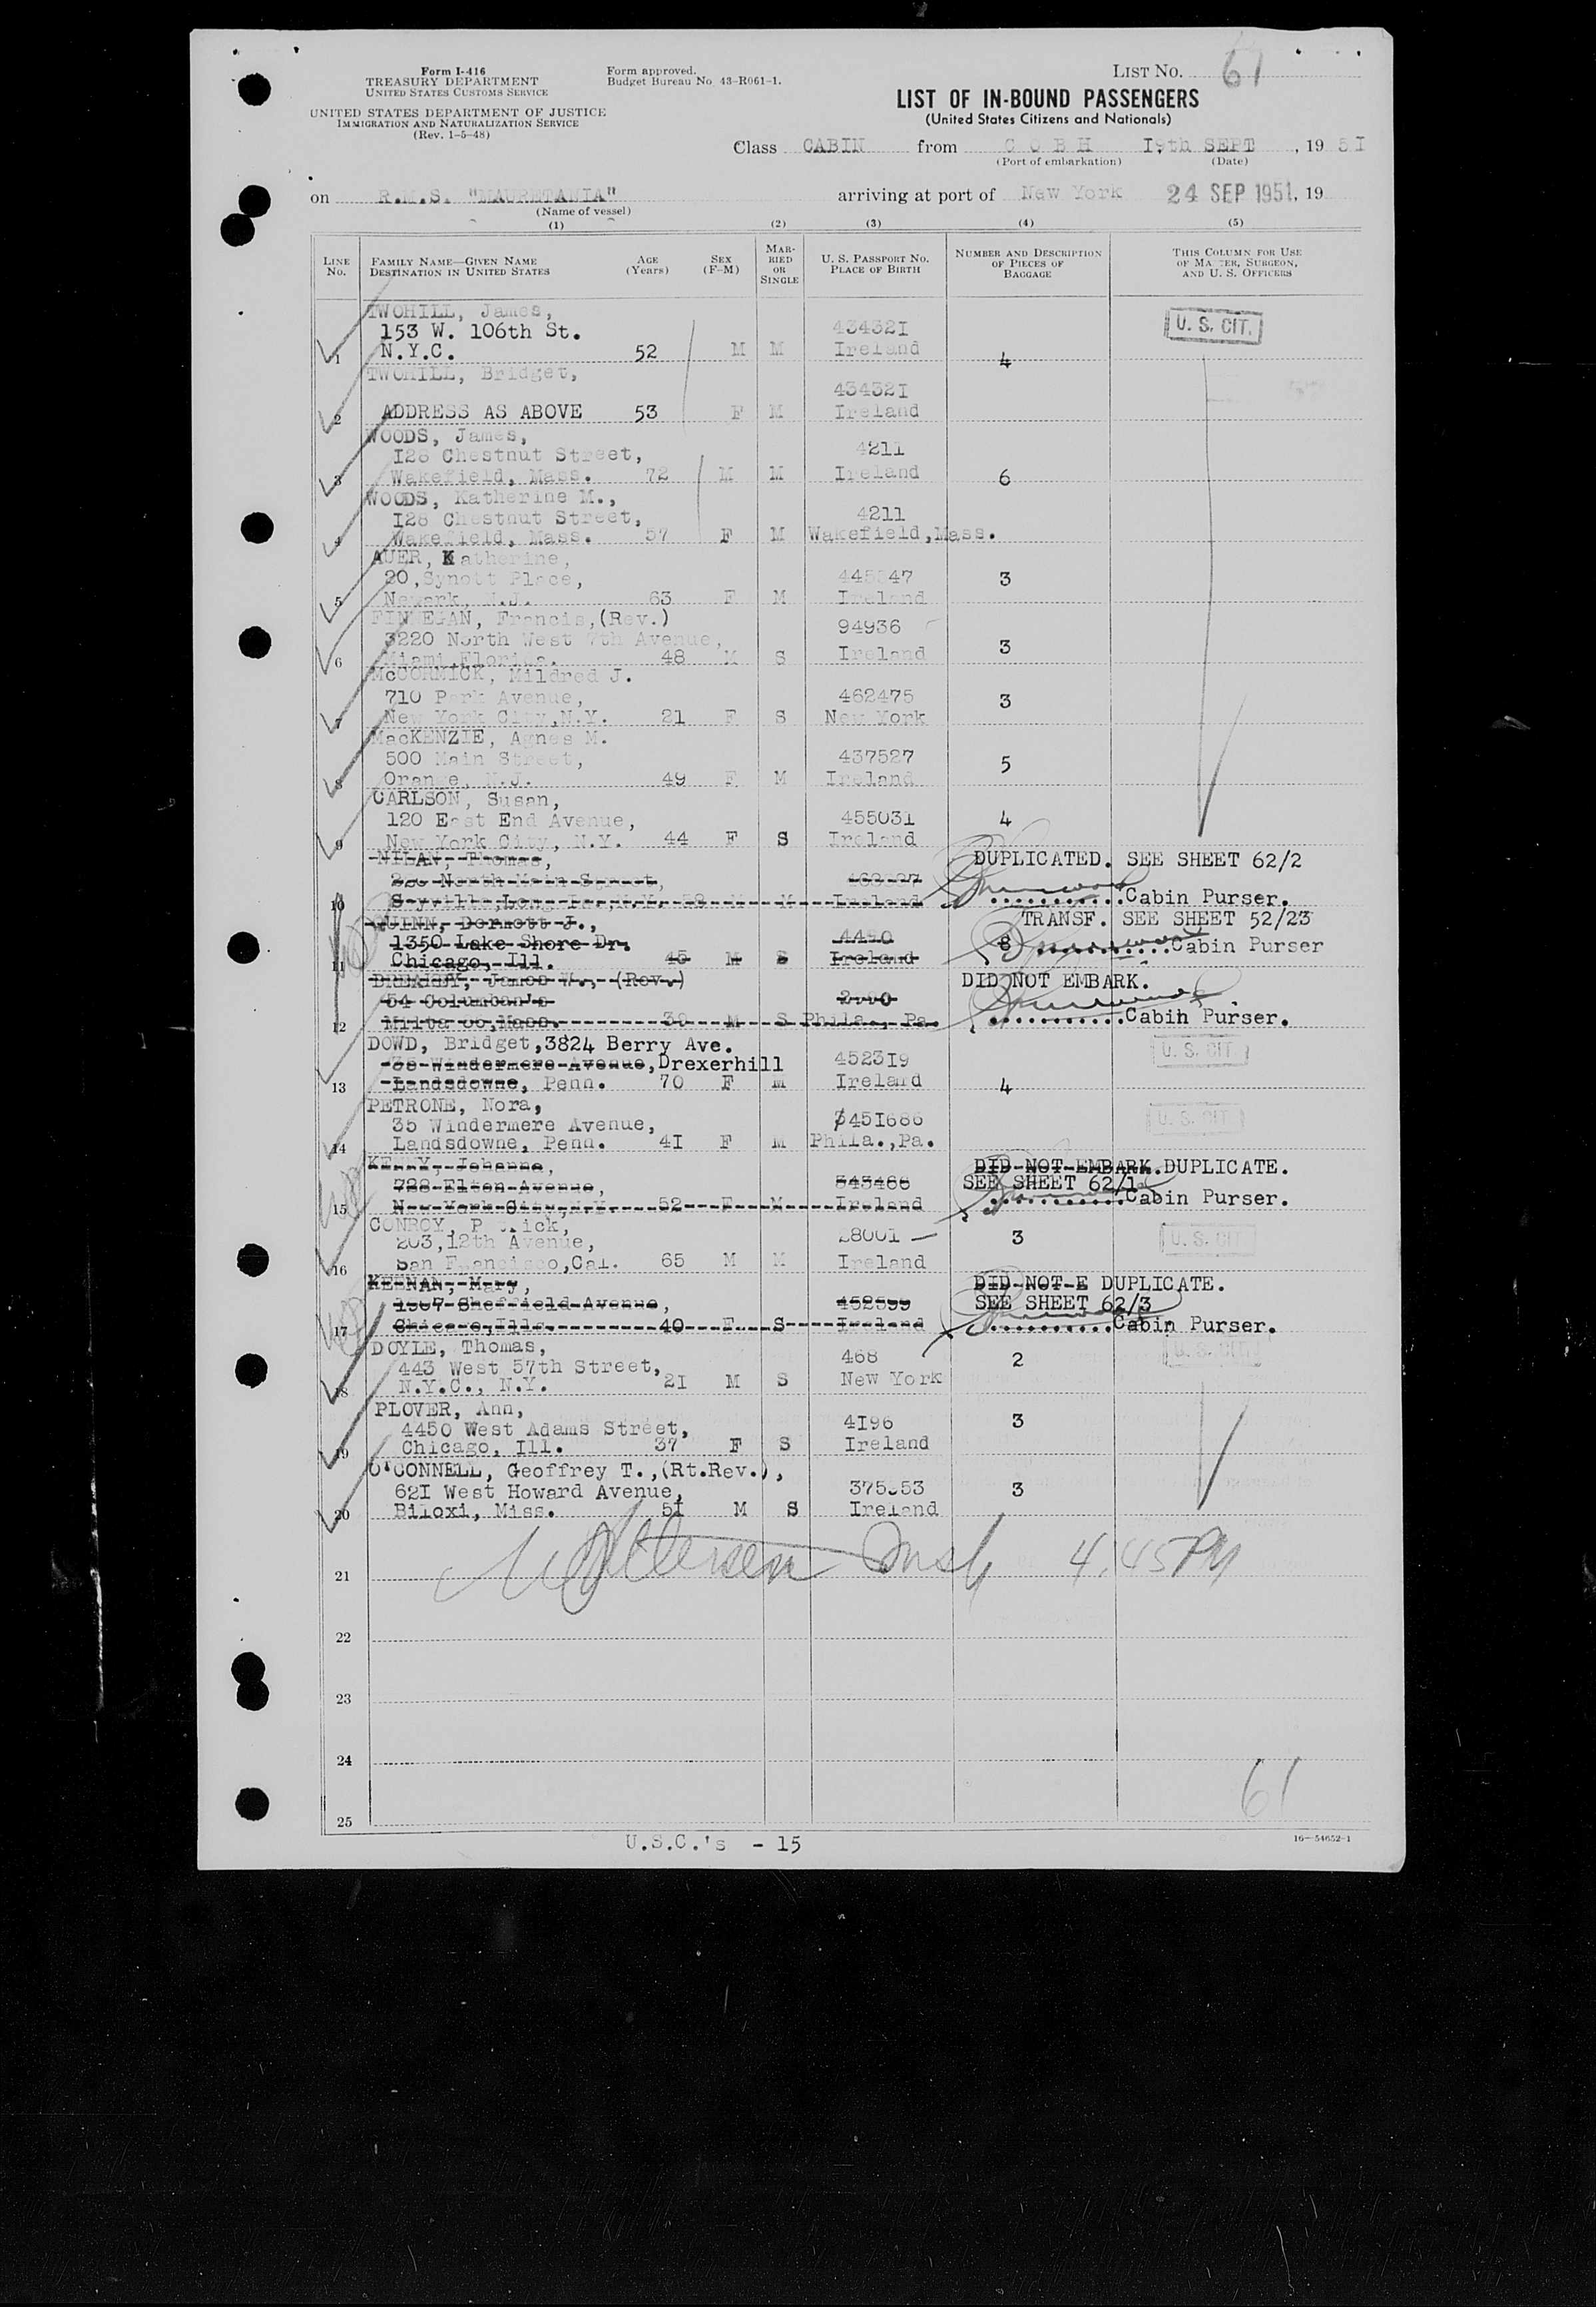 Form I-416
TREASURY DEPARTMENT
UNITED STATES CUSTOMS SERVICE
UNITED STATES DEPARTMENT OF JUSTICE
IMMIGRATION AND NATURALIZATION SERVICE
(Rev. 1-5-48)
Form approved.
Budget Bureau No. 43-R061-1.
LIST NO. 61
LIST OF IN-BOUND PASSENGERS
(United States Citizens and Nationals)
Class CABIN from C O B H I9th SEPT , 19 5I
(Port of embarkation) (Date)
on R.M.S. "MAURETANIA" arriving at port of New York 24 SEP 1951, 19
(Name of vessel)
(1) (2) (3) (4) (5)
LINE No. FAMILY NAME—GIVEN NAME DESTINATION IN UNITED STATES AGE (Years) SEX (F-M) MARRIED OR SINGLE U. S. PASSPORT NO. PLACE OF BIRTH NUMBER AND DESCRIPTION OF PIECES OF BAGGAGE THIS COLUMN FOR USE OF MASTER, SURGEON, AND U. S. OFFICERS
TWOHILL, James,
153 W. 106th St. 43432I U. S. CIT.
1 N.Y.C. 52 M M Ireland 4
TWOHILL, Bridget,
43432I
2 ADDRESS AS ABOVE 53 F M Ireland
WOODS, James,
I28 Chestnut Street, 4211
3 Wakefield, Mass. 72 M M Ireland 6
WOODS, Katherine M.,
I28 Chestnut Street, 4211
4 Wakefield, Mass. 57 F M Wakefield,Mass.
AUER, Katherine,
20,Synott Place, 3
5 Newark, N.J. 63 F M Ireland
FINNEGAN, Francis,(Rev.)
3220 North West 7th Avenue, 94936
6 Miami,Florida. 48 M S Ireland 3
McCORMICK, Mildred J.
710 Park Avenue, 462475 3
7 New York City,N.Y. 21 F S New York
MacKENZIE, Agnes M.
500 Main Street, 437527 5
8 Orange, N.J. 49 F M Ireland
CARLSON, Susan,
120 East End Avenue, 455031 4
9 New York City, N.Y. 44 F S Ireland
NILAN, Thomas, DUPLICATED. SEE SHEET 62/2
North Main Street,
10 M Ireland Cabin Purser.
QUINN, Dermott J., TRANSF. SEE SHEET 52/23
1350 Lake Shore Dr. 8 Cabin Purser
11 Chicago, Ill. 45 M S Ireland
James W., (Rev.) DID NOT EMBARK.
54 Columban's
12 Mass. 39 M S Phila., Pa. Cabin Purser.
DOWD, Bridget,3824 Berry Ave.
Windermere Avenue,Drexerhill 4523I9 U. S. CIT.
13 Landsdowne, Penn. 70 F M Ireland 4
PETRONE, Nora,
35 Windermere Avenue, 45I686 U. S. CIT.
14 Landsdowne, Penn. 4I F M Phila.,Pa.
Johanna, DID NOT EMBARK.DUPLICATE.
728 Elton Avenue, 343466 SEE SHEET 62/1
15 New York City,N.Y. 52 F M Ireland Cabin Purser.
CONROY, Patrick,
203,12th Avenue, 3 U. S. CIT.
16 San Francisco,Cal. 65 M M Ireland
KEENAN, Mary, DID NOT E DUPLICATE.
Sheffield Avenue, 452599 SEE SHEET 62/3
17 Chicago,Ills. 40 F S Ireland Cabin Purser.
DOYLE, Thomas, U. S. CIT.
443 West 57th Street, 468 2
18 N.Y.C., N.Y. 2I M S New York
PLOVER, Ann,
4450 West Adams Street, 4I96 3
19 Chicago, Ill. 37 F S Ireland
O'CONNELL, Geoffrey T.,(Rt.Rev.),
62I West Howard Avenue, 3
20 Biloxi, Miss. 5I M S Ireland
21 4.45 PM
22
23
24
61
25
U.S.C.'s - 15
16—54652-1